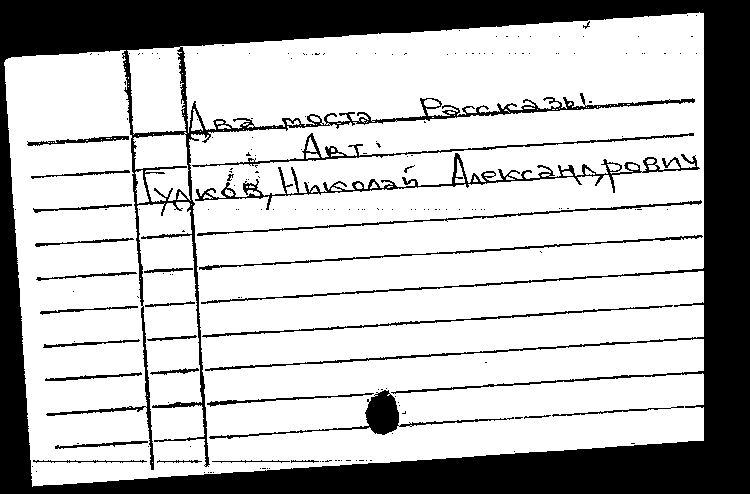 Два моста Рассказы.
Авт:
Гудков, Николай Александрович